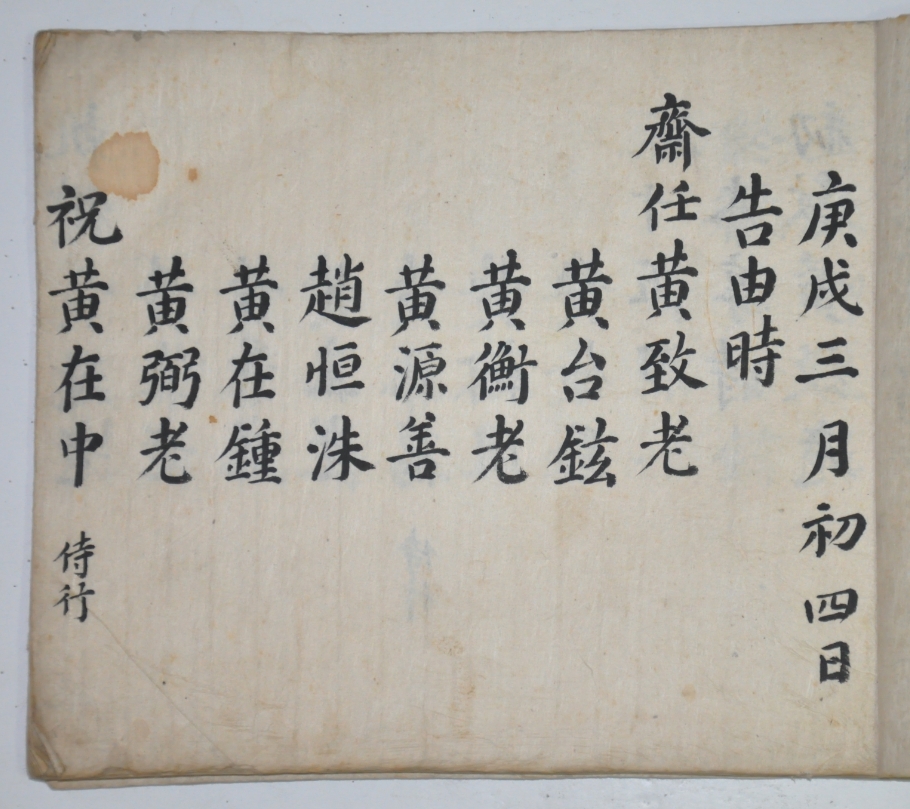 庚戌三月初四日
告由時
齋任黃致老
黃台鉉
黃衡老
黃源善
趙恒洙
黃在鍾
黃弼老
祝黃在中 侍行